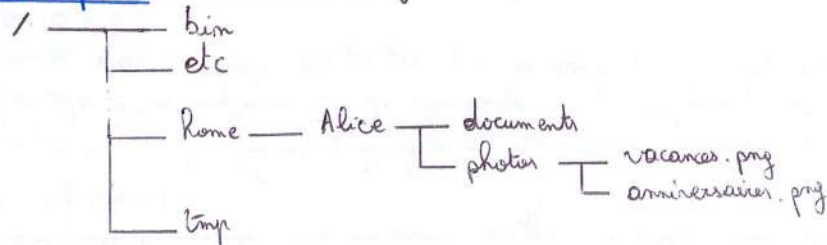 / bin
etc
home Alice documents
photos vacances.png
anniversaires.png
tmp